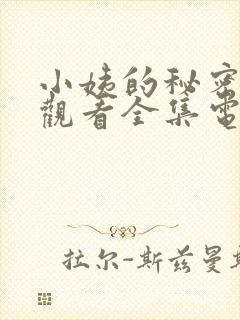 小姨的秘密
觀看全集電
拉尔-斯兹曼斯